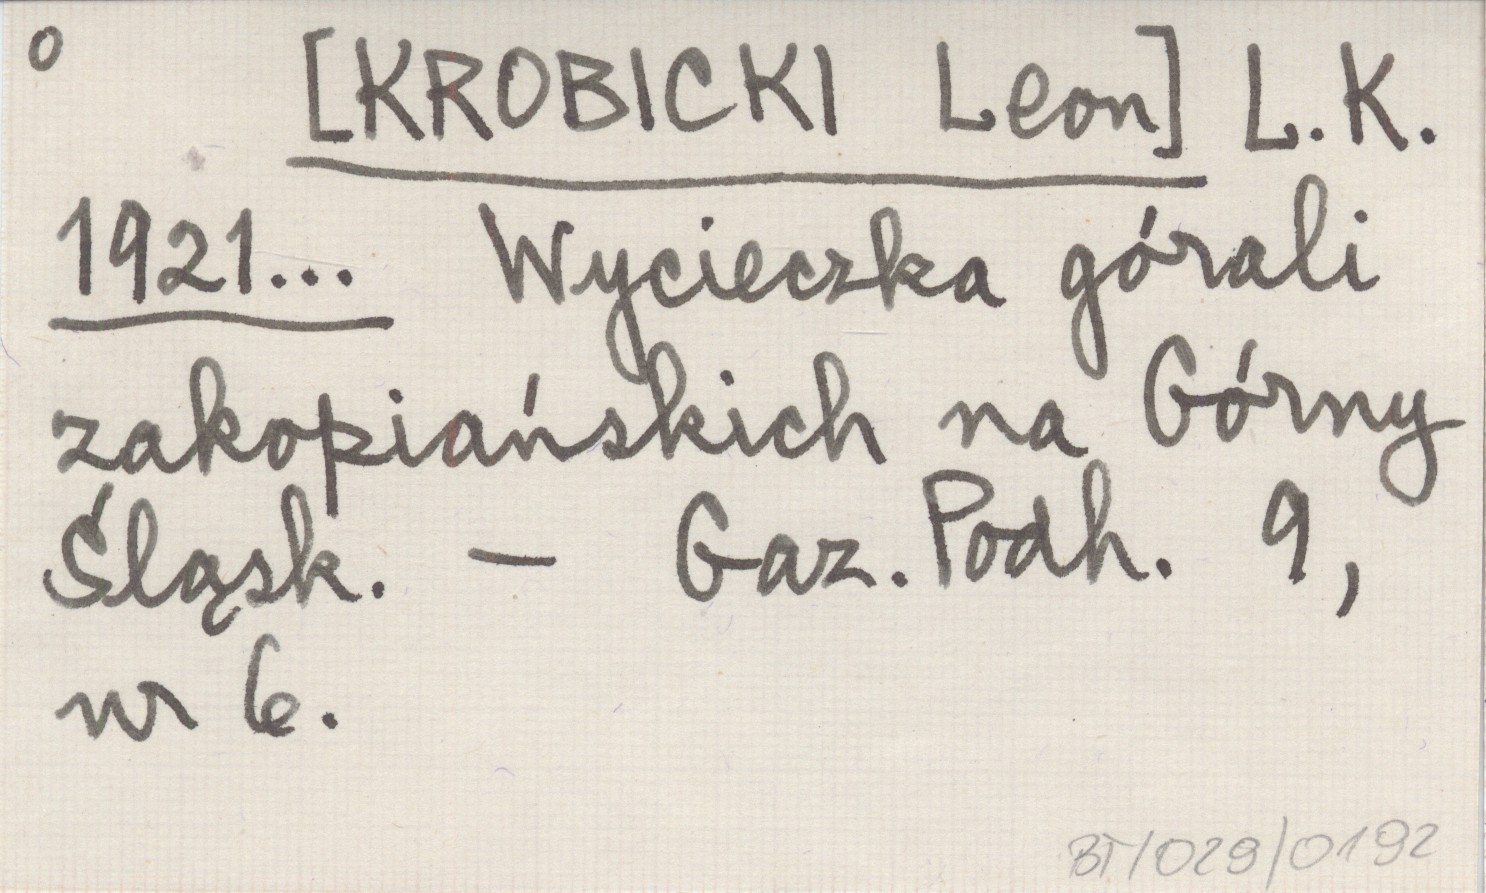 o [KROBICKI Leon] L.K.
1921... Wycieczka górali
zakopiańskich na Górny
Śląsk. — Gaz. Podh. 9,
nr 6.
BT/029/0192